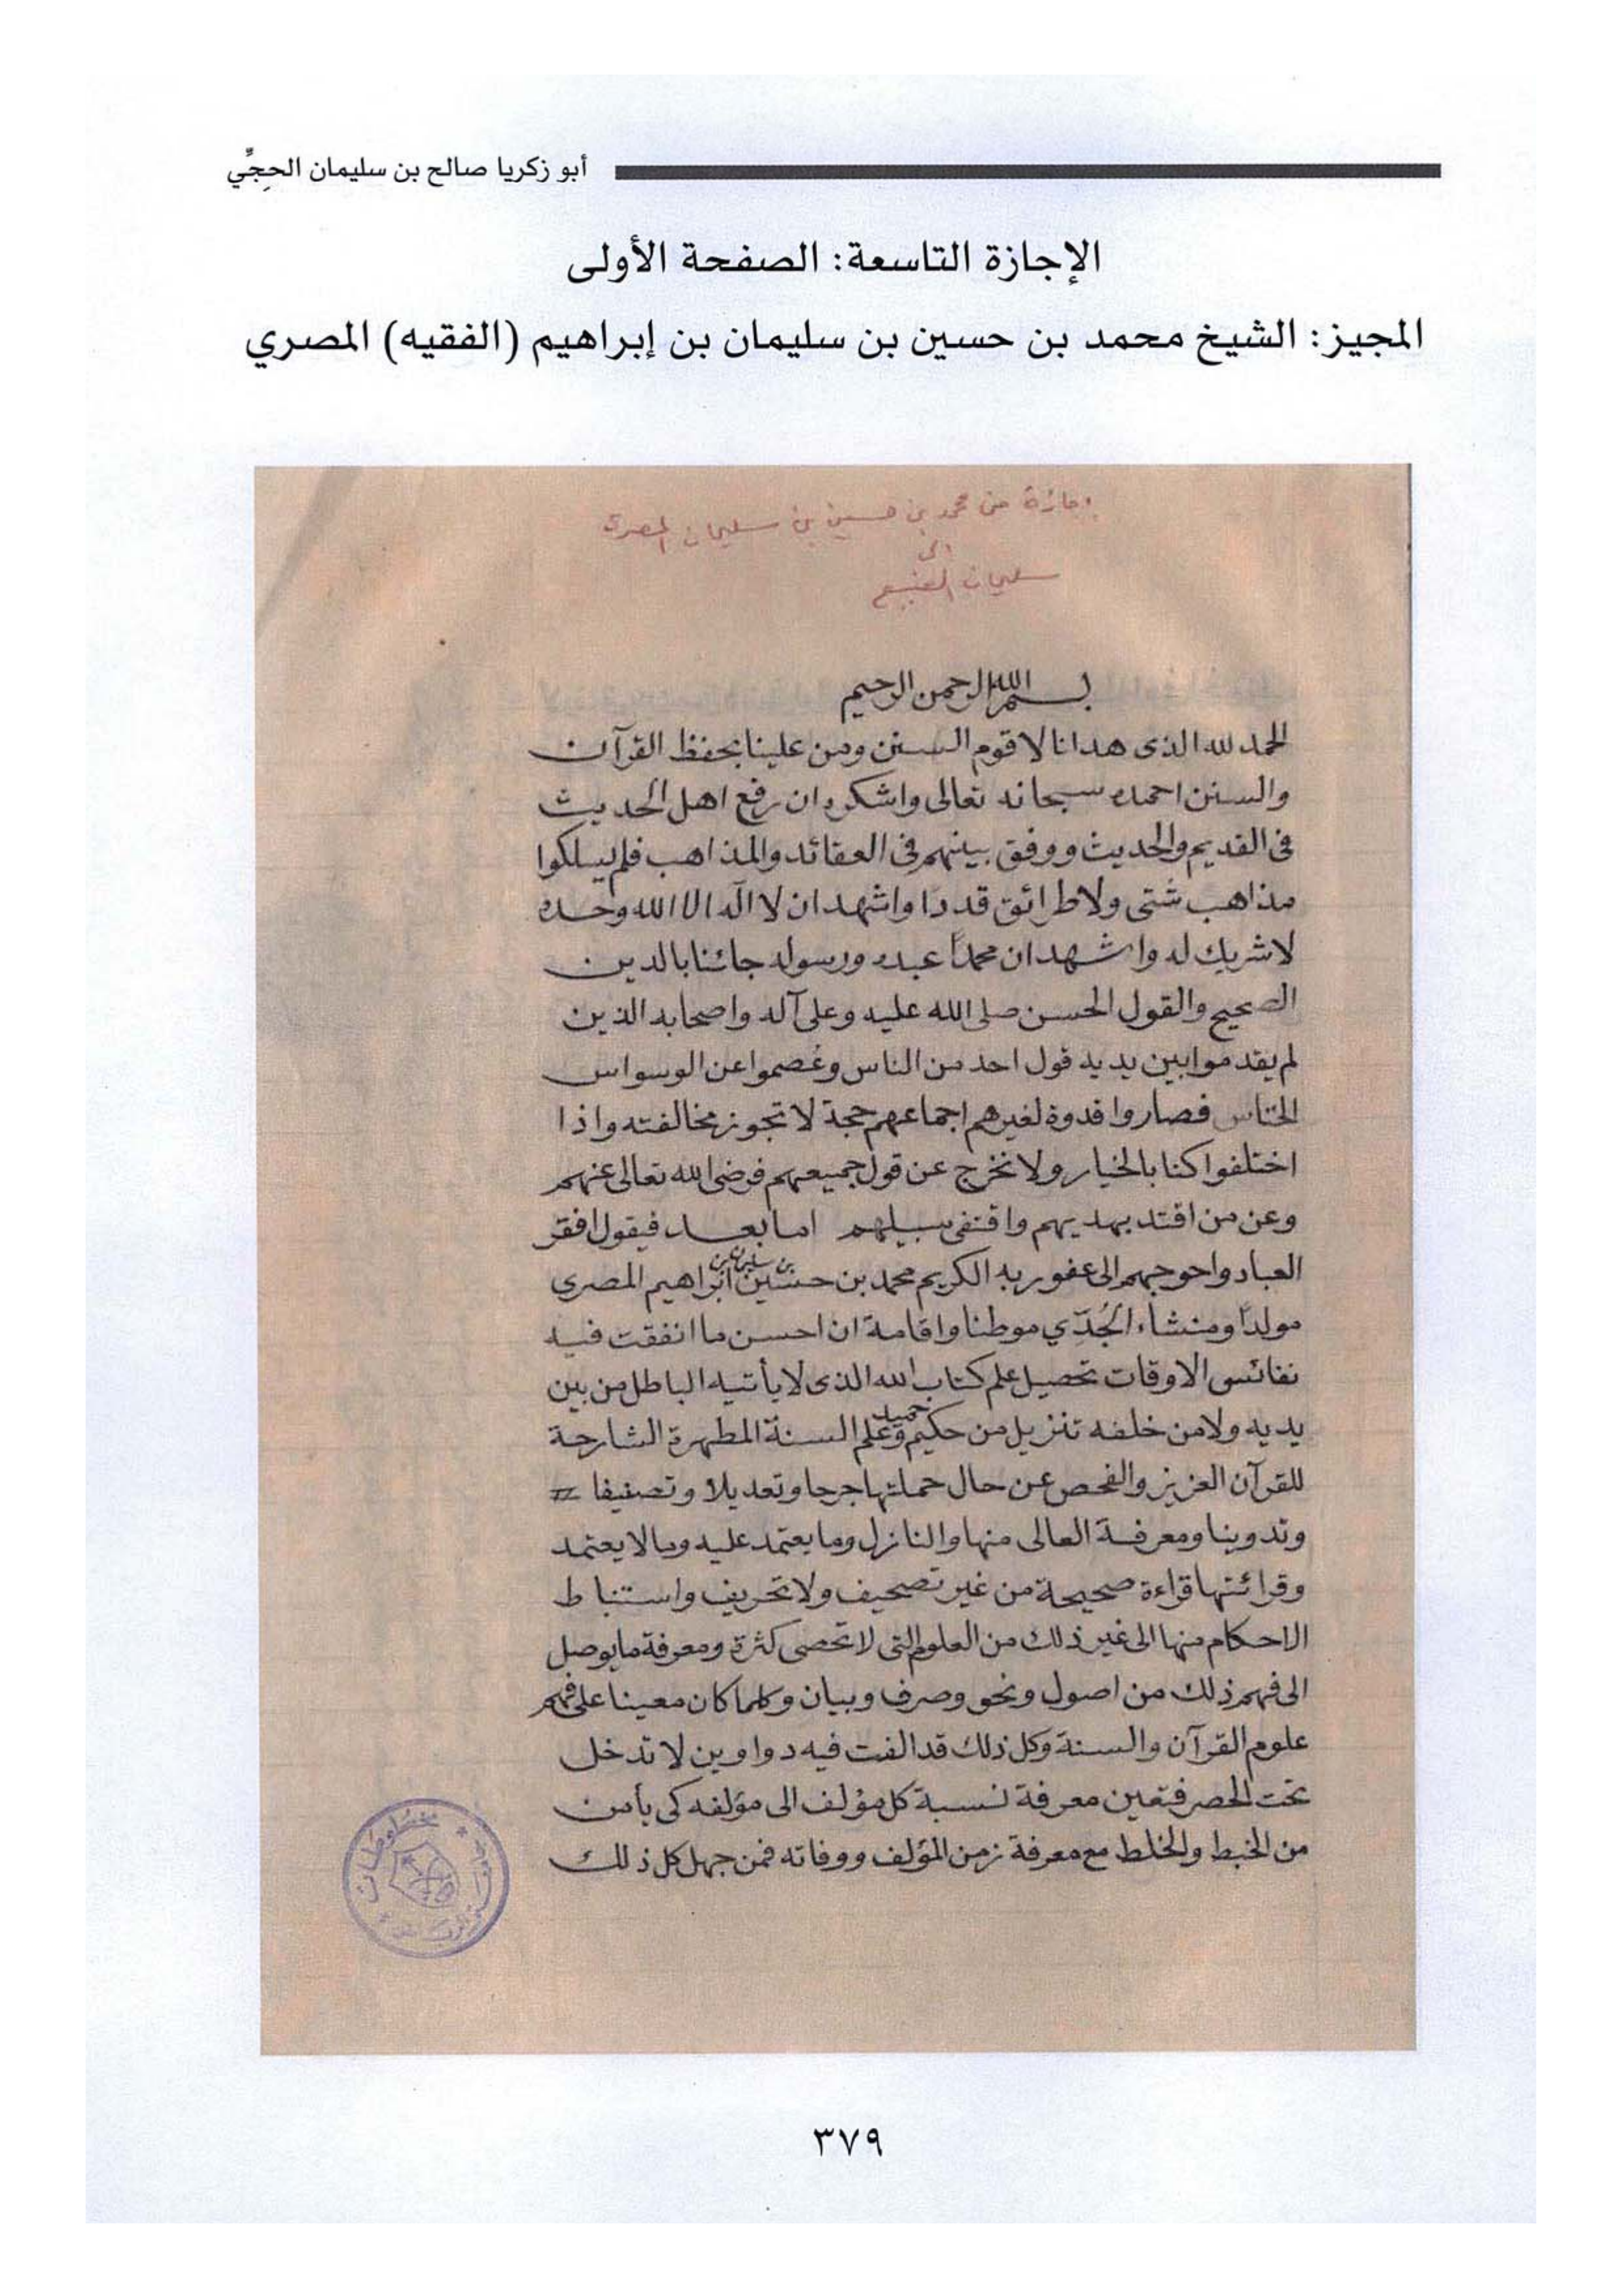 أبو زكريا صالح بن سليمان الحجِّي
الإجازة التاسعة: الصفحة الأولى
المجيز: الشيخ محمد بن حسين بن سليمان بن إبراهيم (الفقيه) المصري
إجازة من محمد بن حسين بن سليمان المصري
الى
سليمان الصنيع
بسم الله الرحمن الرحيم
الحمد لله الذى هدانا لاقوم السنن ومن علينا بحفظ القرآن
والسنن احمده سبحانه تعالى واشكره ان رفع اهل الحديث
فى القديم والحديث ووفق بينهم فى العقائد والمذاهب فلم يسلكوا
مذاهب شتى ولا طرائق قددا واشهد ان لا اله الا الله وحده
لا شريك له واشهد ان محمداً عبده ورسوله جائنا بالدين
الصحيح والقول الحسن صلى الله عليه وعلى آله واصحابه الذين
لم يقدموا بين يديه قول احد من الناس وعُصموا عن الوسواس
الخناس فصاروا قدوة لغيرهم اجماعهم حجة لا تجوز مخالفته واذا
اختلفوا كنا بالخيار ولا نخرج عن قول جميعهم فرضى الله تعالى عنهم
وعن من اقتد بهديهم واقتفى سبيلهم اما بعد فيقول افقر
العباد واحوجهم الى عفو ربه الكريم محمد بن حسين بن سليمان بن ابراهيم المصرى
مولداً ومنشاء الجُدّي موطنا واقامة ان احسن ما انفقت فيه
نفائس الاوقات تحصيل علم كتاب الله الذى لا يأتيه الباطل من بين
يديه ولا من خلفه تنزيل من حكيم حميد وعلم السنة المطهرة الشارحة
للقرآن العزيز والفحص عن حال حملتها جرحا وتعديلا وتصنيفا
وتدوينا ومعرفة العالى منها والنازل وما يعتمد عليه وما لا يعتمد
وقرائتها قراءة صحيحة من غير تصحيف ولا تحريف واستنباط
الاحكام منها الى غير ذلك من العلوم التى لا تحصى كثرة ومعرفة ما يوصل
الى فهم ذلك من اصول ونحو وصرف وبيان وكلما كان معينا على فهم
علوم القرآن والسنة وكل ذلك قد الفت فيه دواوين لا تدخل
تحت الحصر فتعين معرفة نسبة كل مؤلف الى مؤلفه كى يأمن
من الخبط والخلط مع معرفة زمن المؤلف ووفاته فمن جهل كل ذلك
مخطوطات
٣٧٩